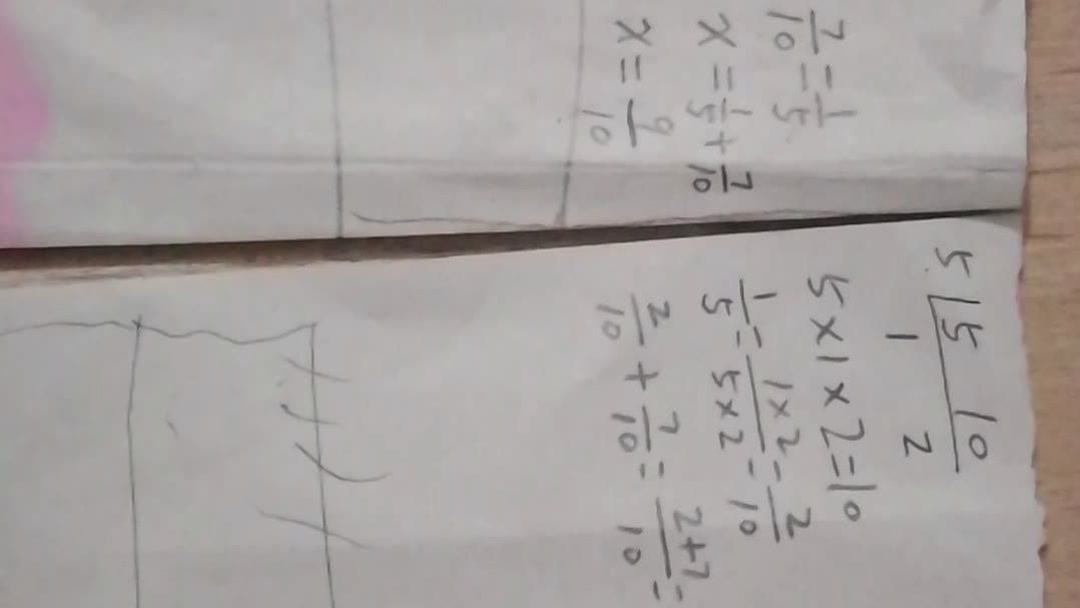 7/10 = 1/5
x = 1/5 + 7/10
x = 9/10
5 | 5 10
1 2
5 × 1 × 2 = 10
1/5 = 1×2/5×2 = 2/10
2/10 + 7/10 = 2+7/10 =